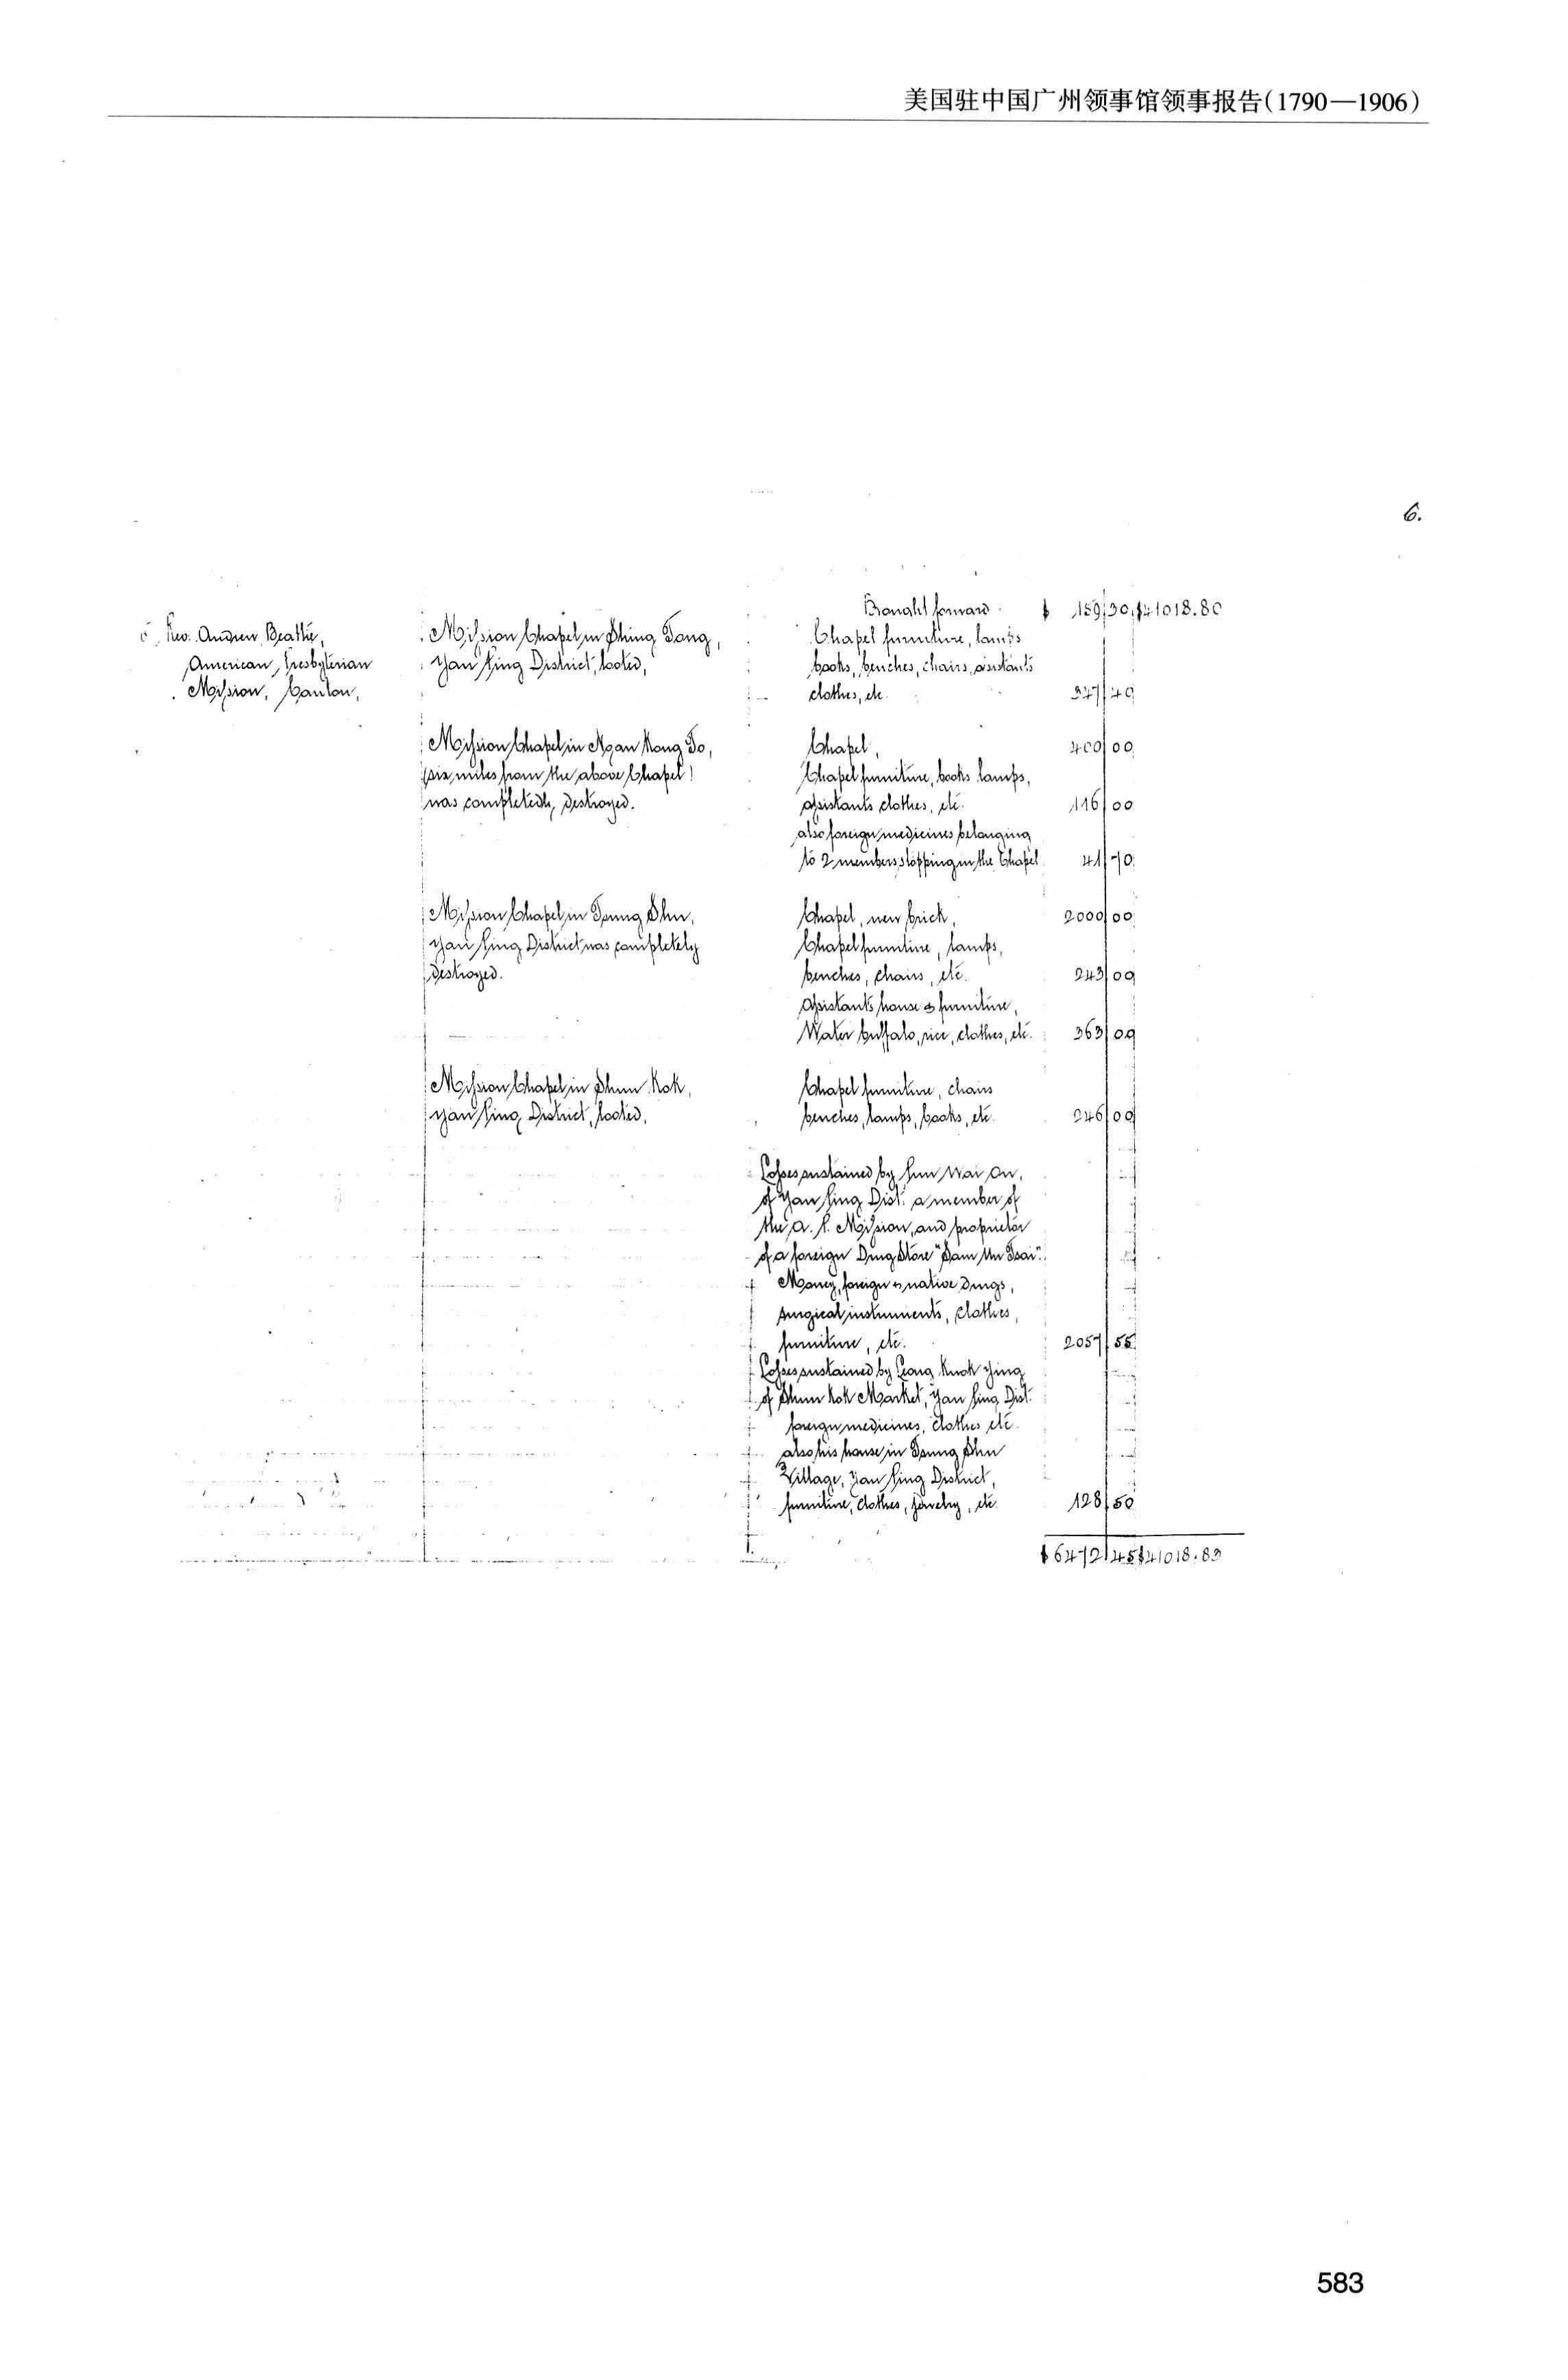 美国驻中国广州领事馆领事报告(1790—1906)
6.
Brought forward $ 159 30 $41018.80
Rev. Andrew Beattie,
American Presbyterian
Mission, Canton,
Mission Chapel in Shing Tong,
Yan Ping District, looted,
Chapel furniture, lamps
books, benches, chairs, assistants
clothes, etc. 347 40
Mission Chapel in Ngan Kong To,
six miles from the above Chapel
was completely destroyed.
Chapel, 400 00
Chapel furniture, books lamps,
assistants clothes, etc. 116 00
also foreign medicines belonging
to 2 members stopping in the Chapel 41 70
Mission Chapel in Tsung Shu,
Yan Ping District was completely
destroyed.
Chapel, new brick, 2000 00
Chapel furniture, lamps,
benches, chairs, etc. 243 00
Assistants house & furniture,
Water buffalo, rice, clothes, etc. 363 00
Mission Chapel in Shun Kok,
Yan Ping District, looted,
Chapel furniture, chairs
benches, lamps, books, etc. 246 00
Losses sustained by Wai On,
of Yan Ping Dist. a member of
the A. P. Mission, and proprietor
of a foreign Drug Store "Sam Tsai".
Money, foreign & native drugs,
surgical instruments, clothes,
furniture, etc. 2057 55
Losses sustained by Leong Kwok Ying
of Shun Kok Market, Yan Ping Dist.
foreign medicines, clothes etc.
also his house in Tsung Shu
Village, Yan Ping District,
furniture, clothes, jewelry, etc. 128 50
$6472 45 $41018.80
583